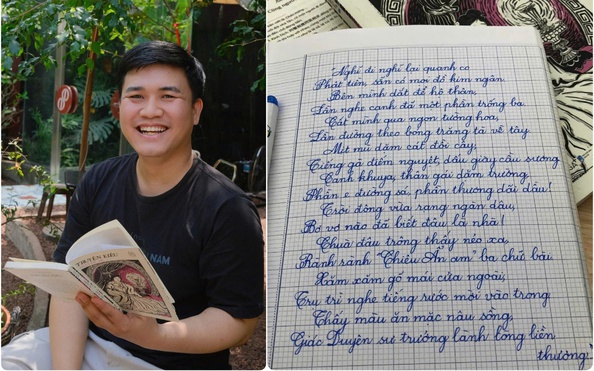 TRUYỆN KIỀU
NAM
"Nghĩ đi nghĩ lại quanh co
Phật tiền, sẵn có mọi đồ kim ngân.
Bên mình dắt để hộ thân,
Lần nghe canh đã một phần trống ba.
Cất mình qua ngọn tường hoa,
Lần đường theo bóng trăng tà về tây.
Mịt mù dặm cát đồi cây,
Tiếng gà điếm nguyệt, dấu giày cầu sương
Canh khuya, thân gái dặm trường,
Phần e đường sá, phần thương dãi dầu!
Trời đông vừa rạng ngàn dâu,
Bơ vơ nào đã biết đâu là nhà!
Chùa đâu trông thấy nẻo xa,
Rành rành "Chiêu Ẩn am" ba chữ bài.
Xăm xăm gõ mái cửa ngoài,
Trụ trì nghe tiếng rước mời vào trong
Thấy màu ăn mặc nâu sồng,
Giác Duyên sư trưởng lành lòng liền
thương."